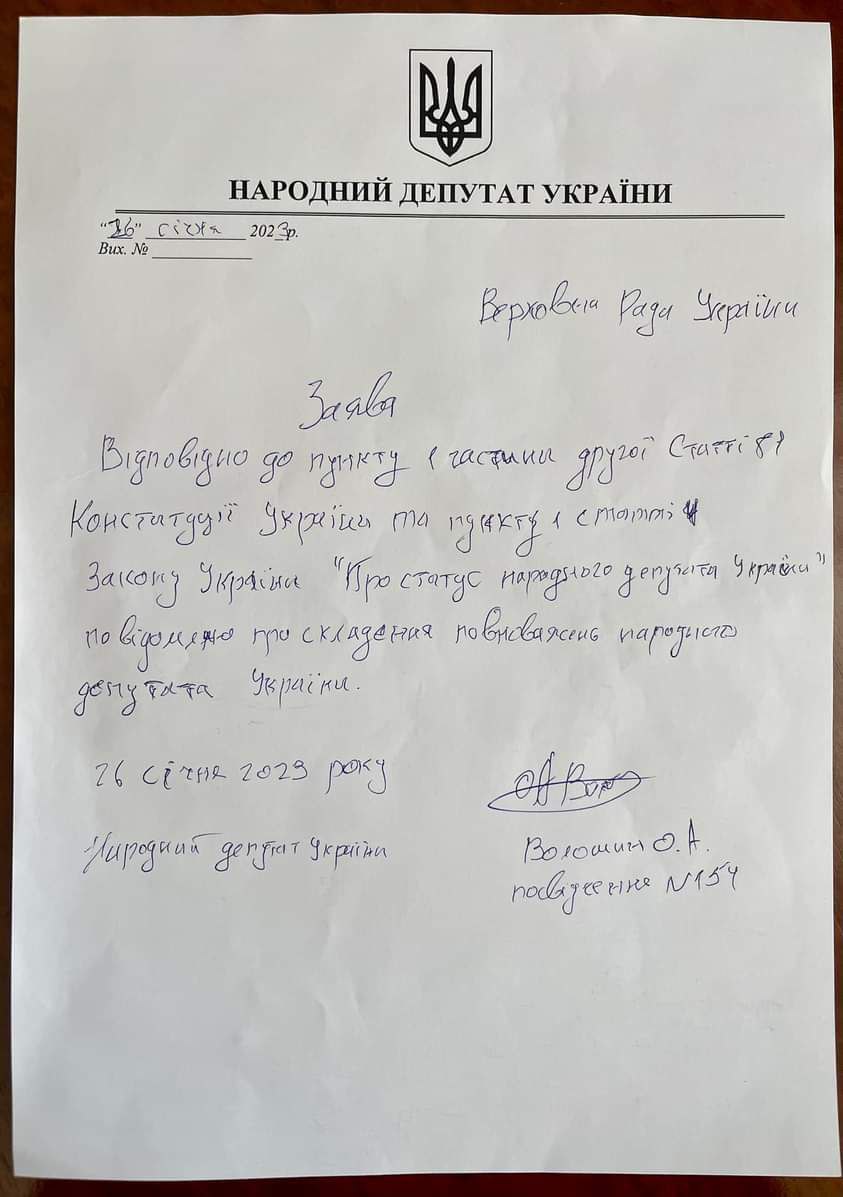 НАРОДНИЙ ДЕПУТАТ УКРАЇНИ
"26" січня 2023р.
Вих. №
Верховна Рада України
Заява
Відповідно до пункту 1 частини другої Статті 81
Конституції України та пункту 1 статті 4
Закону України "Про статус народного депутата України"
повідомляю про складення повноважень народного
депутата України.
26 січня 2023 року
Народний депутат України
Волошин О.А.
посвідчення №154